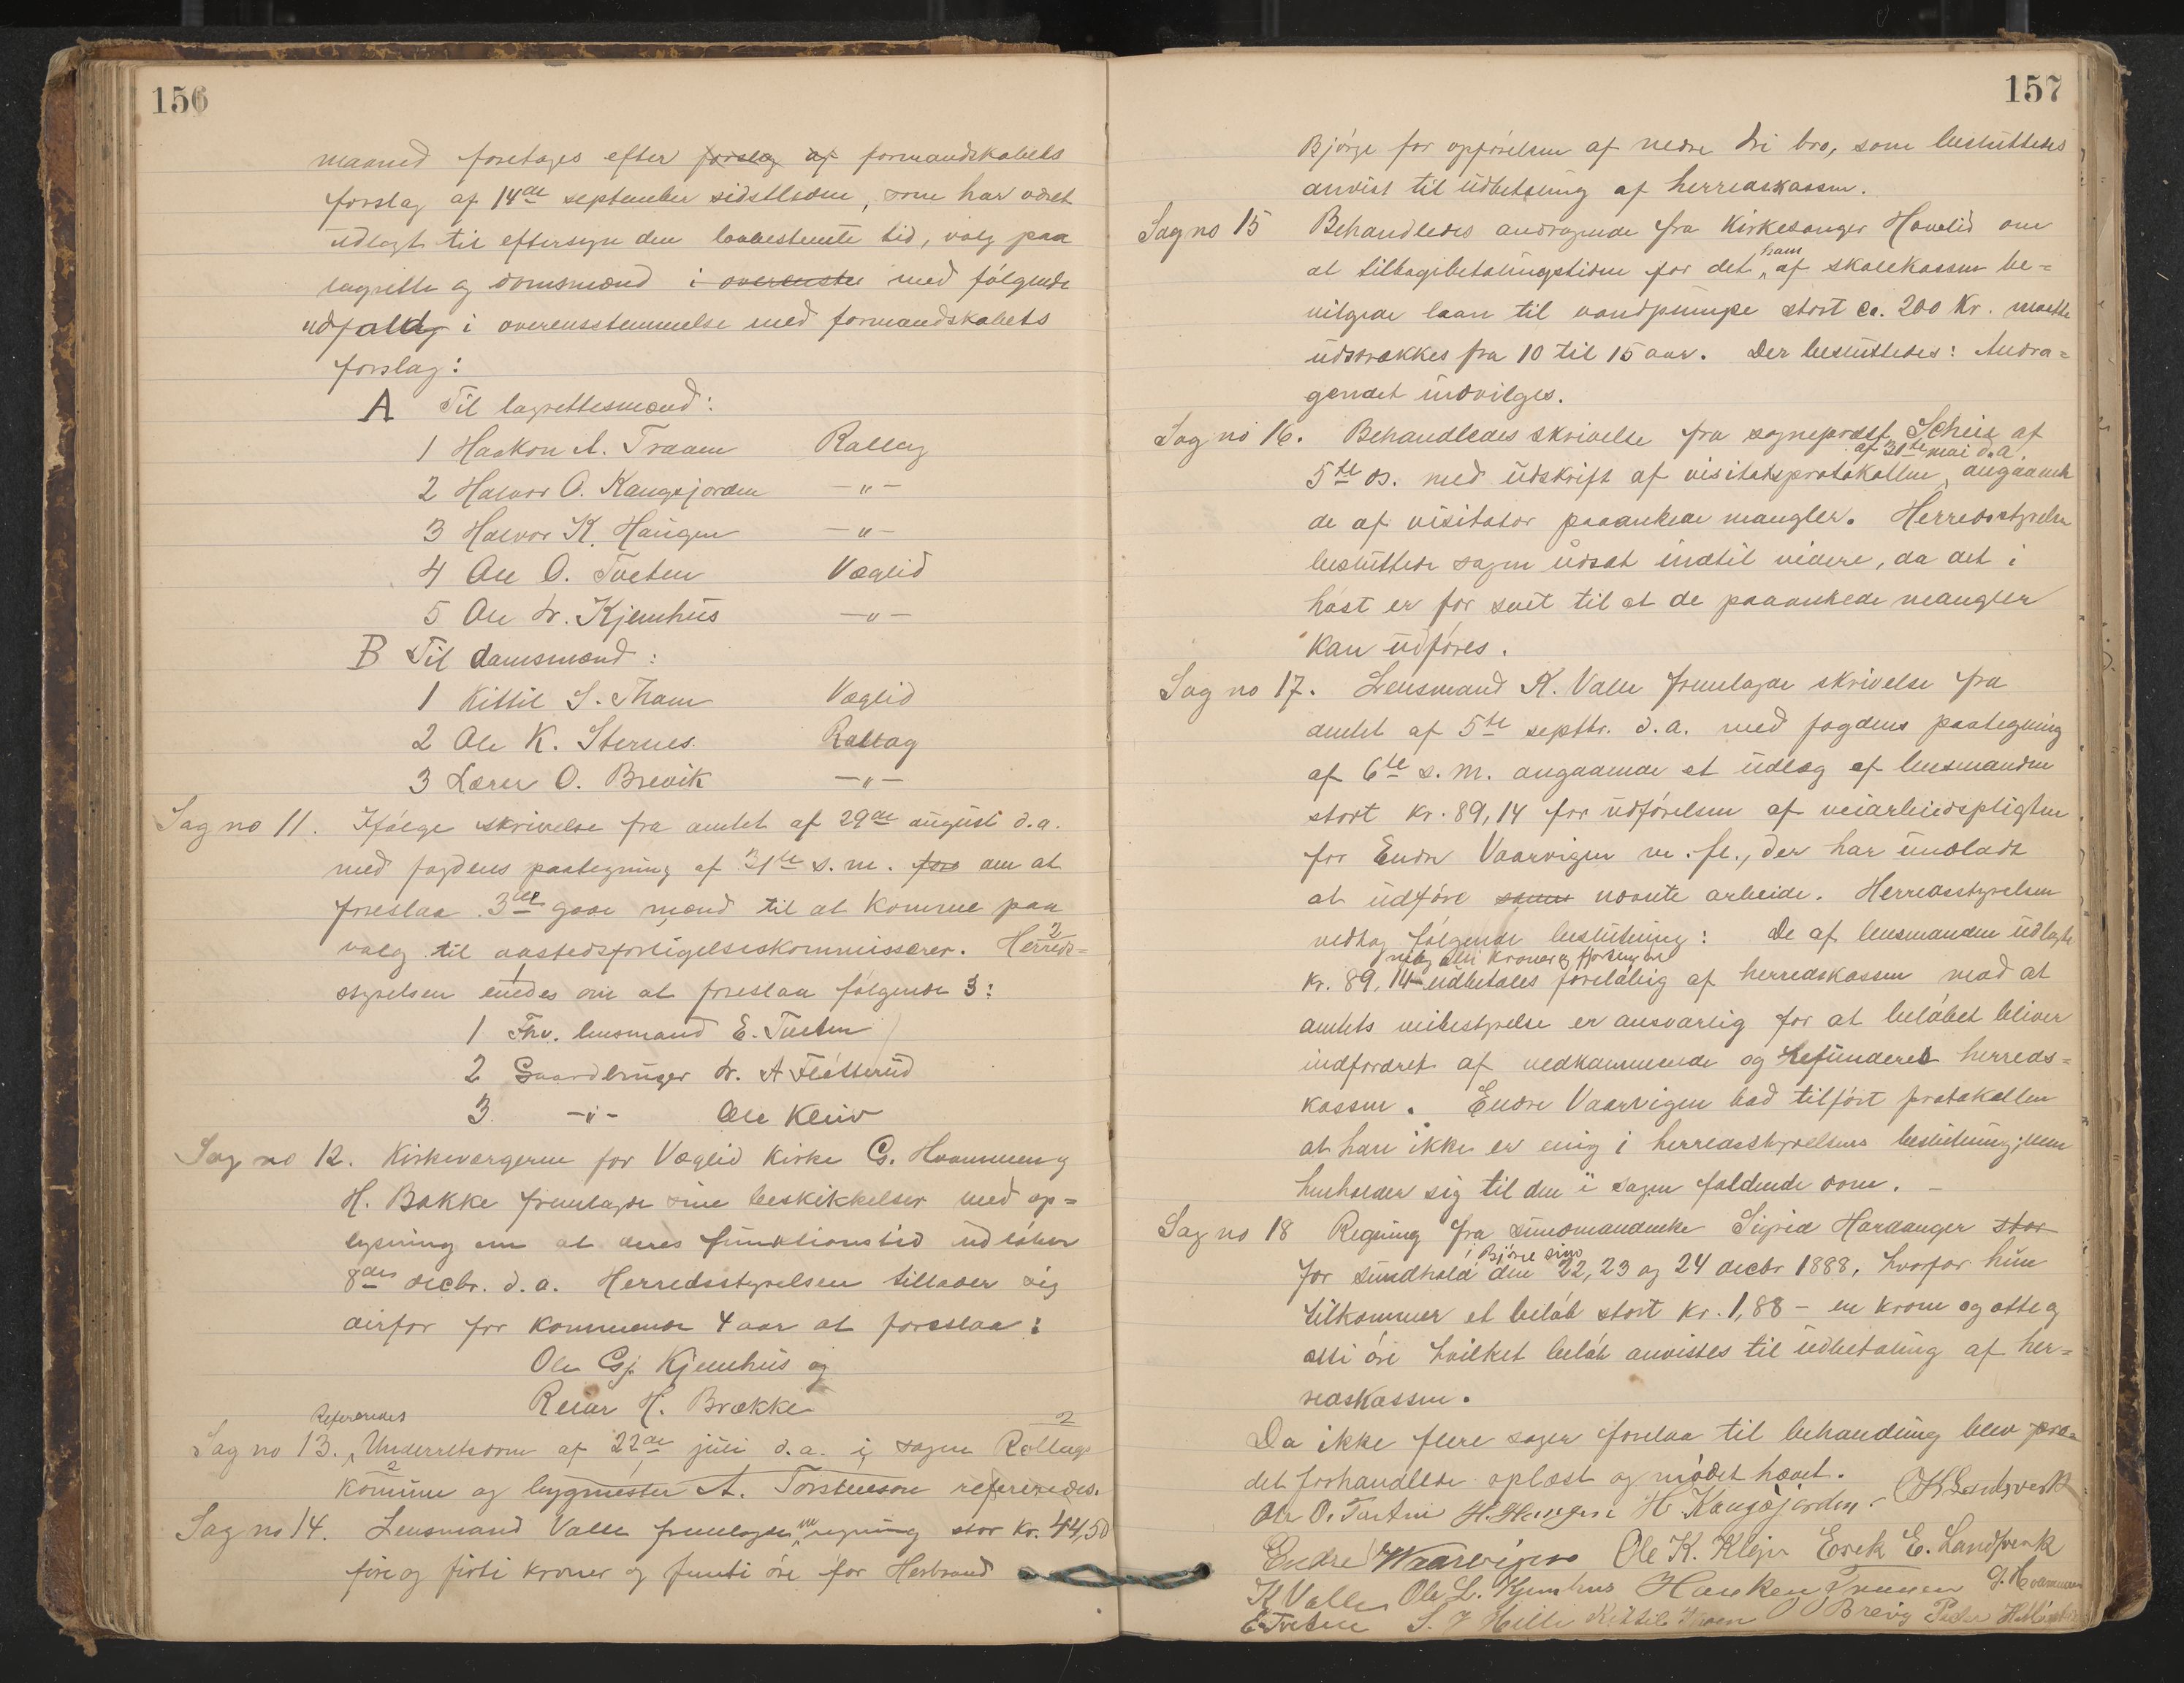 156
maaned foretages efter forslag af formandskabets
forslag af 14de september sidstleden, som har været
udlagt til eftersyn den lovbestemte tid, valg paa
lagrette og domsmænd i overenste med følgende
udfald, i overensstemmelse med formandskabets
forslag:
A Til lagrettesmænd:
1 Haakon A. Traaen Rollag
2 Halvor O. Kangsjorden -"-
3 Halvor K. Haugen -"-
4 Ole O. Tveten Væglid
5 Ole Kjemhus -"-
B Til domsmænd:
1 Kittil S. Thoen Væglid
2 Ole K. Sternes Rollag
3 Lærer O. Brevik -"-
Sag no 11. Ifølge skrivelse fra amtet af 29de august d.a.
med fogdens paategning af 31te s.m. for om at
foreslaa 3de gode mænd til at komme paa
valg til aastedsforligelseskommissærer. Herreds=
styrelsen enedes om at foreslaa følgende 3:
1 Fhv. lensmand E. Tveten
2 Gaardbruger A Fløtterud
3. -"- Ole Kleiv
Sag no 12. Kirkeværgerne for Væglid Kirke G. Hvammen og
H. Bakke fremlagde sine beskikkelser med op=
lysning om at deres funktionstid udløber
8des decbr. d.a. Herredsstyrelsen tillader sig
derfor for kommende 4 aar at foreslaa:
Ole Gj. Kjemhus og
Reiar H. Brække
Refereredes
Sag no 13. Underretsdom af 22de juli d.a. i sagen Rollags
komune og bygmester A. Torstenson refereredes.
Sag no 14. Lensmand Valle fremlagde en regning stor kr. 44,50
fire og firti kroner og femti øre for Herbrand
157
Bjørge for opførelsen af nedre bro, som besluttedes
anvist til udbetaling af herredskassen.
Sag no 15 Behandledes andragende fra Kirkesanger Hovelid om
at tilbagebetalingstiden for det ham af skolekassen be=
vilgede laan til vandpumpe stort ca. 200 Kr. maatte
udstrækkes fra 10 til 15 aar. Der besluttedes: Andra=
gendet indvilges.
Sag no 16. Behandledes skrivelse fra sogneprest Scheie af
af 31te mai d.a.
5te ds. med udskrift af visitatsprotokollen, angaaen
de af visitator paaankede mangler. Herredsstyrelsen
besluttede sagen udsat indtil videre, da det i
høst er for sent til at de paaankede mangler
kan udføres.
Sag no 17. Lensmand K. Valle fremlagde skrivelse fra
amtet af 5te septbr. d.a. med fogdens paategning
af 6te s.m. angaaende et udlæg af lensmanden
stort kr. 89,14 for udførelsen af veiarbeidspligten
for Endre Vaarvigen m.fl., der har undladt
at udføre samme nævnte arbeide. Herredsstyrelsen
vedtog følgende beslutning: De af lensmanden udlagte
niog otti kroner og fjorten øre
kr. 89,14 udbetales foreløbig af herredskassen mod at
amtets veibestyrelse er ansvarlig for at beløbet bliver
indfordret af vedkommende og refunderes herreds=
kassen. Endre Vaarvigen bad tilført protokollen
at han ikke er enig i herredsstyrelsens beslutning; men
henholder sig til den i sagen faldende dom. -
Sag no 18 Regning fra sundmandenke Sigrid Hardanger stor
for sundhold den 22, 23 og 24 decbr 1888, hvorfor hun
tilkommer et beløb stort kr. 1,88 - en krone og otteog
otti øre hvilket beløb anvistes til udbetaling af her=
redskassen.
Da ikke flere sager forelaa til behandling blev
det forhandlede oplæst og mødet hævet.
Ole O. Tveten H. Haugen H Kangsjorden
Endre Waarvigen Ole K. Kleiv Erek E. Landsverk
K Valle Ole L. Kjemhus Haaken Traaen G. Hvammen
E. Tveten Kittil Thoen O Brevig Peder